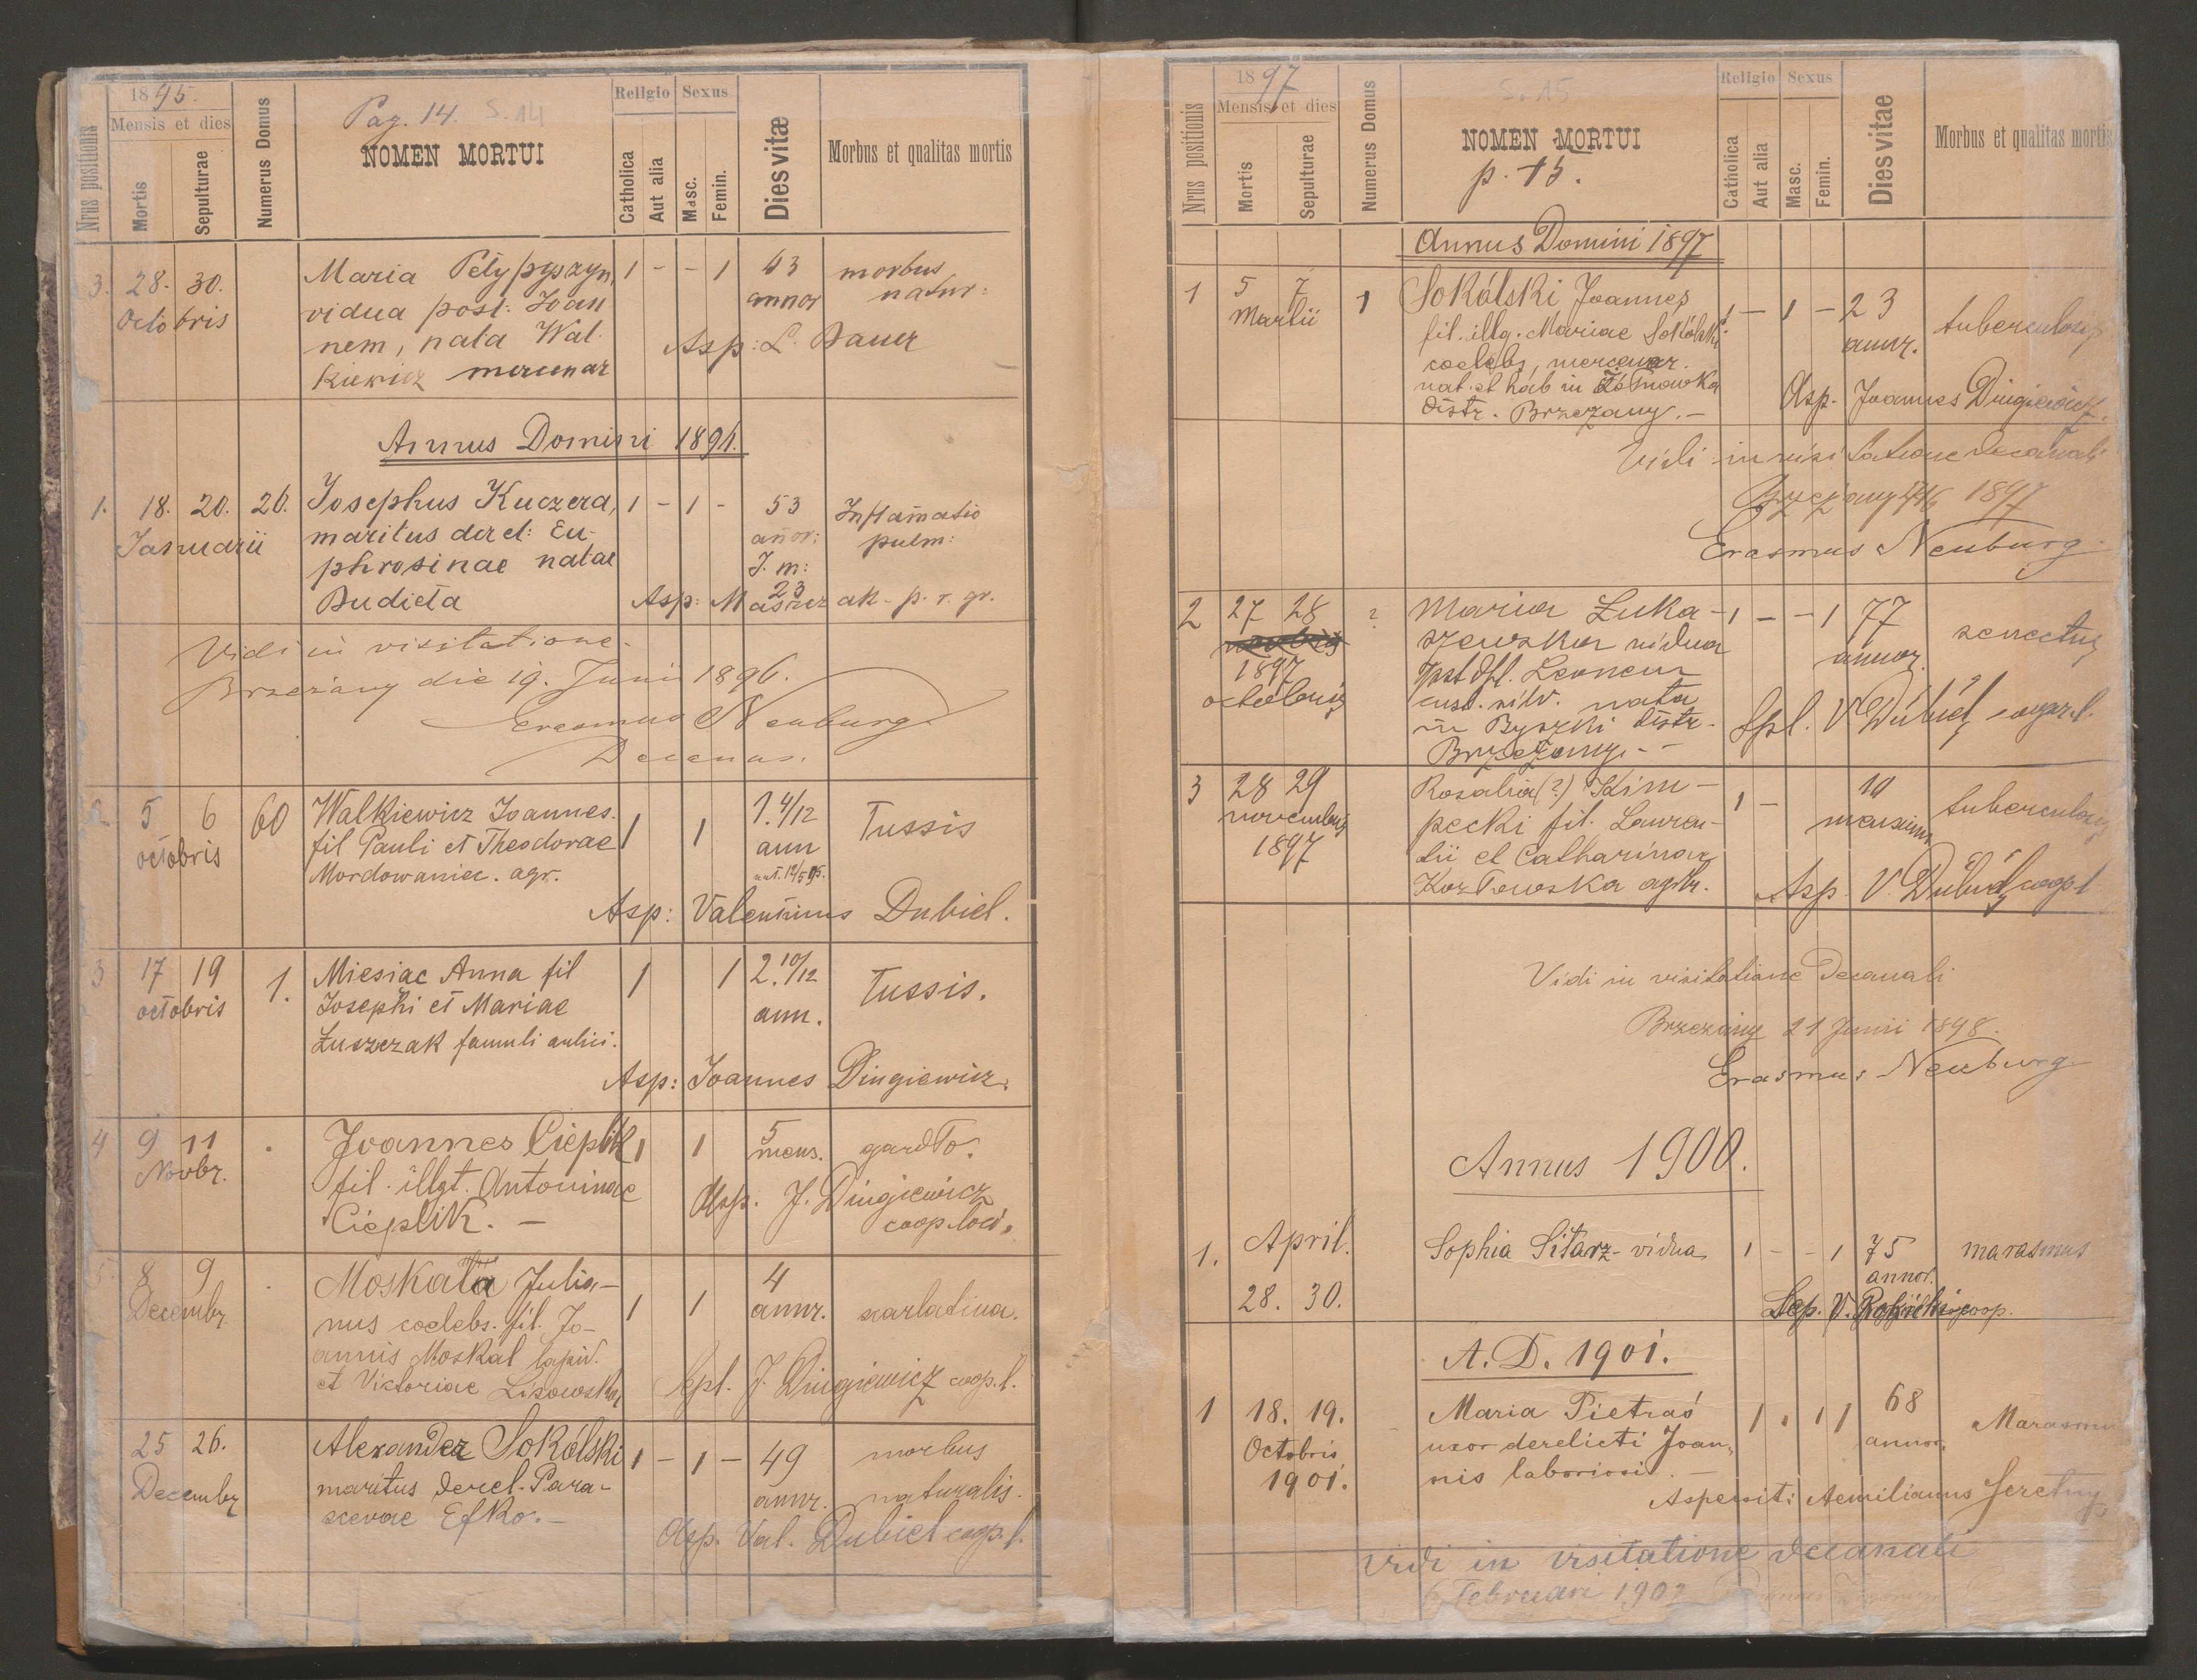 1895.
Pag. 14. S. 14
Nrus positionis
Mensis et dies
Mortis
Sepulturae
Numerus Domus
NOMEN MORTUI
Religio
Catholica
Aut alia
Sexus
Masc.
Femin.
Dies vitæ
Morbus et qualitas mortis
3. 28. 30. Maria Petypyszyn, 1 - - 1 43 morbus
Octobris vidua post: Joan annor natur:
nem, nata Wal- Asp: L. Bauer
kiewicz mercenar
Annus Domini 1896.
1. 18. 20. 26. Josephus Kuczera, 1 - 1 - 53 Inflamatio
Januarii maritus derel: Eu- anor: pulm:
phrosinae natae J. m:
Budieta 23
Asp: Maszczak - p. r. gr.
Vidi in visitatione
Brzeżany die 19. Junii 1896.
Erasmus Neuburg
Decanus.
2 5 6 60 Walkiewicz Joannes. 1 1 1. 4/12 Tussis
octobris fil Pauli et Theodorae ann
Mordowaniec. agr. nat. 12/5 95.
Asp: Valentinus Dubiel.
3 17 19 1. Miesiac Anna fil 1 1 2. 10/12 Tussis.
octobris Josephi et Mariae ann.
Łuszczak famuli aulici.
Asp: Joannes Dingiewicz.
4 9 11 Joannes Cieplik 1 1 5 gardło.
Novbr. fil. illgt. Antoninae mens.
Cieplik. — Asp. J. Dingiewicz
coop. loci.
5 8 9 Moskala Julia- 1 1 4
Decembr. nus coelebs. fil. Jo- annr. scarlatina.
annis Moskal lapid.
et Victoriae Lisowska Spl. J. Dingiewicz coop. l.
25 26. Alexander Sokólski 1 - 1 - 49 morbus
Decembr maritus derel. Para- annr. naturalis.
scevae Efko. —
Asp. Val. Dubiel coop. l.
1897
S. 15
Nrus positionis
Mensis et dies
Mortis
Sepulturae
Numerus Domus
NOMEN MORTUI
p. 15.
Religio
Catholica
Aut alia
Sexus
Masc.
Femin.
Dies vitae
Morbus et qualitas mortis
Annus Domini 1897
1 5 7 1 Sokólski Joannes 1 - 1 - 23 tuberculosis
Martii fil. illg. Mariae Sokólski annr.
coelebs, mercenar.
nat. et hab in
distr. Brzeżany. — Asp. Joannes Dingiewicz.
Vidi in visitatione decanali
Brzeżany 1897
Erasmus Neuburg
2 27 28 ? Maria Łuka- 1 - - 1 77 senectus
1897 szewska vidua annor.
octobris post dfl. Leonem
cust. silv. nata
in Byszki distr. Spl. V Dubiel, coop. l.
Brzeżany. -
3 28 29 Rosalia (?) Kim- 1 - 10 tuberculosis
novembris pecki fil. Lauren- mensium
1897 tii et Catharinae
Kozłowska agrlr. Asp. V. Dubiel coop l
Vidi in visitatione Decanali
Brzeżany 21 Junii 1898.
Erasmus Neuburg
Annus 1900.
1. April. Sophia Sitarz - vidua 1 - - 1 75 marasmus
28. 30. annor.
Sep. V. coop.
A. D. 1901.
1 18. 19. Maria Pietraś 1 . 1 1 68 Marasmu
Octobris uxor derelicti Joan- annor.
1901. nis laboriosi. —
Aspersit: Aemilianus Seretny
Vidi in visitatione decanali
Februari 1902